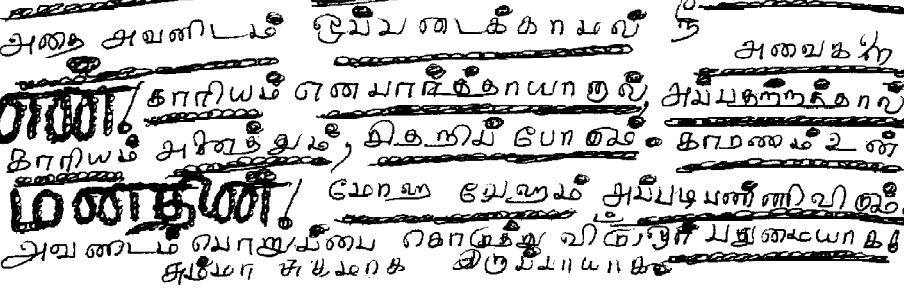 அதை அவனிடம் ஒப்படைக்காமல் நீ
அவைகளை
எண்! காரியம் என பார்த்தாயானால், அப்பதற்றத்தால்
காரியம் அனைத்தும், சிதறிப் போகும். காரணம் உன்
மனதின்! மோஹ வேஹம் அப்படிபண்ணிவிடும்.
அவனிடம் பொறுப்பை கொடுத்து விடு பதுமையாக
சும்மா சுகமாக இருப்பாயாக.